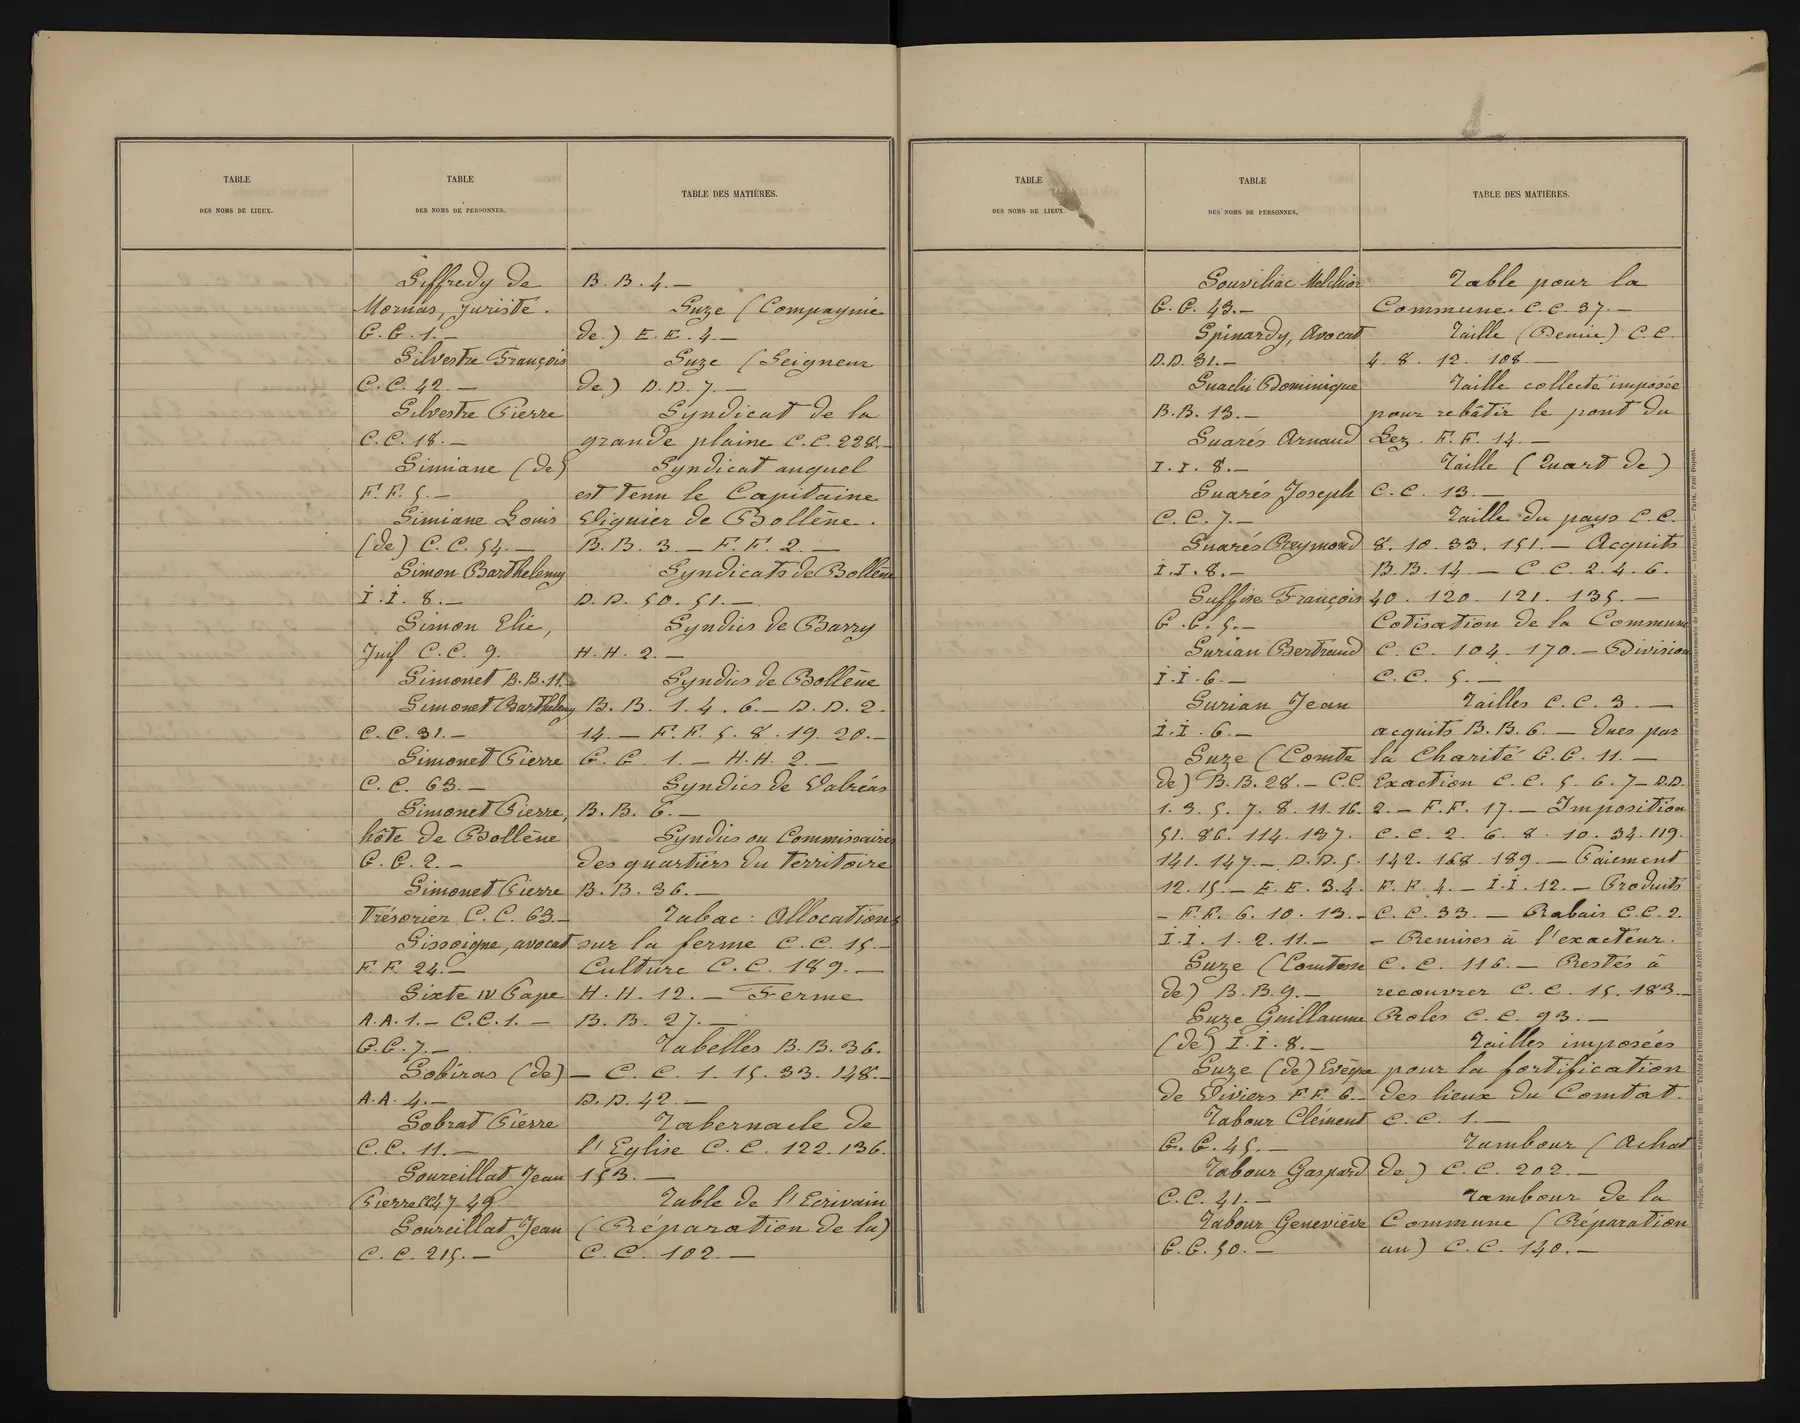 TABLE
DES NOMS DE LIEUX.
TABLE
DES NOMS DE PERSONNES.
TABLE DES MATIÈRES.
Siffredy de
Mornas, juriste.
G.G. 1.—
Silvestre François
C.C. 42.—
Silvestre Pierre
C.C. 18.—
Simiane (de)
F.F. 5.—
Simiane Louis
(de) C.C. 54.—
Simon Barthelemy
I.I. 8.—
Simon Elie,
Juif C.C. 9.
Simonet B.B. 11.—
Simonet Barthelemy
C.C. 31.—
Simonet Pierre
C.C. 63.—
Simonet Pierre,
hôte de Bollène
G.G. 2.—
Simonet Pierre
Trésorier C.C. 63.—
Sissoigne, avocat
F.F. 24.—
Sixte IV Pape
A.A. 1.— C.C. 1.—
G.G. 7.—
Sobiras (de)
A.A. 4.—
Sobrat Pierre
C.C. 11.—
Soureillat Jean
Pierre CC 47. 49.
Soureillat Jean
C.C. 215.—
B.B. 4.—
Suze (Compagnie
de.) E.E. 4.—
Suze (Seigneur
de) D.D. 7.—
Syndicat de la
grande plaine C.C. 228.—
Syndicat auquel
est tenu le Capitaine
Viguier de Bollène.
B.B. 3.— F.F. 2.—
Syndicats de Bollène
D.D. 50. 51.—
Syndics de Barry
H.H. 2.—
Syndics de Bollène
B.B. 1. 4. 6.— D.D. 2.
14.— F.F. 5. 8. 19. 20.—
G.G. 1.— H.H. 2.—
Syndics de Valréas
B.B. 6.—
Syndics ou Commissaires
des quartiers du territoire
B.B. 36.—
Tabac: Allocations
sur la ferme C.C. 15.—
Culture C.C. 189.—
H.H. 12.— Ferme
B.B. 27.—
Tabelles B.B. 36.
— C.C. 1. 15. 33. 148.—
D.D. 42.—
Tabernacle de
l'Eglise C.C. 122. 136.
153.—
Table de l'Ecrivain
(Réparation de la)
C.C. 102.—
TABLE
DES NOMS DE LIEUX.
TABLE
DES NOMS DE PERSONNES.
TABLE DES MATIÈRES.
Souviliac Melchior
G.G. 43.—
Spinardy, Avocat
D.D. 31.—
Dominique
B.B. 13.—
Suarés Arnaud
I.I. 8.—
Suarés Joseph
C.C. 7.—
Suarés Reymond
I.I. 8.—
Suffise François
G.G. 5.—
Surian Bertrand
I.I. 6.—
Surian Jean
I.I. 6.—
Suze (Comte
de) B.B. 28.— C.C.
1. 3. 5. 7. 8. 11. 16.
51. 86. 114. 137.
141. 147.— D.D. 5.
12. 15.— E.E. 3. 4.
— F.F. 6. 10. 13.—
I.I. 1. 2. 11.—
Suze (Comtesse
de) B.B. 9.—
Suze Guillaume
(de) I.I. 8.—
Suze (de) Evêque
de Viviers F.F. 6.—
Tabour Clément
G.G. 45.—
Tabour Gaspard
C.C. 41.—
Tabour Geneviève
G.G. 50.—
Table pour la
Commune. C.C. 37.—
Taille (Demie) C.C.
4. 8. 12. 108.—
Taille collecte imposée
pour rebâtir le pont du
Lez. F.F. 14.—
Taille (Quart de)
C.C. 13.—
Taille du pays C.C.
8. 10. 33. 151.— Acquits
B.B. 14.— C.C. 2. 4. 6.
40. 120. 121. 135.—
Cotisation de la Commune
C.C. 104. 170.— Division
C.C. 5.—
Tailles C.C. 3.—
acquits B.B. 6.— Dues par
la Charité G.G. 11.—
Exaction C.C. 5. 6. 7.— D.D.
2.— F.F. 17.— Imposition
C.C. 2. 6. 8. 10. 34. 119.
142. 168. 189.— Paiement
F.F. 4.— I.I. 12.— Produits
C.C. 33.— Rabais C.C. 2.
— Remises à l'exacteur.
C.C. 116.— Restes à
recouvrer C.C. 15. 183.—
Roles C.C. 93.—
Tailles imposées
pour la fortification
des lieux du Comtat.
C.C. 1.—
Tambour (Achat
de) C.C. 202.—
Tambour de la
Commune (Réparation
au) C.C. 140.—